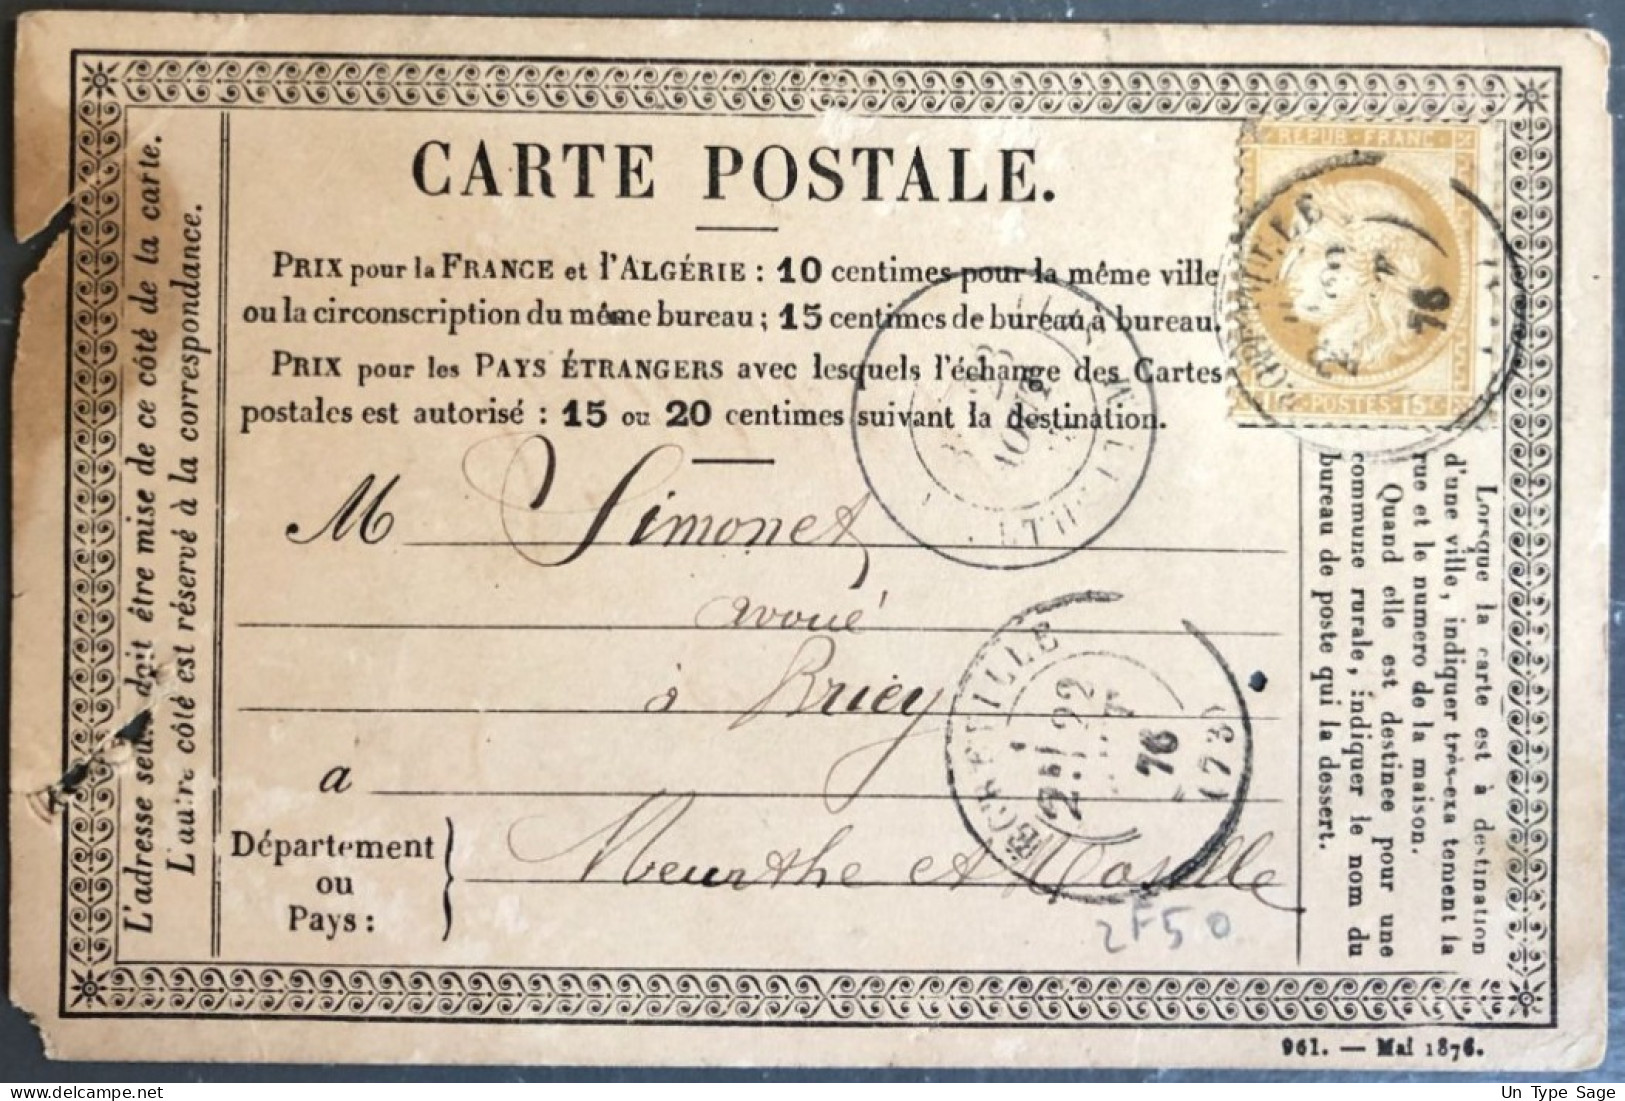 CARTE POSTALE.
PRIX pour la FRANCE et l'ALGÉRIE : 10 centimes pour la même ville
ou la circonscription du même bureau ; 15 centimes de bureau à bureau.
PRIX pour les PAYS ÉTRANGERS avec lesquels l'échange des Cartes
postales est autorisé : 15 ou 20 centimes suivant la destination.
M Simonet
avoué
à Briey
a
Département
ou
Pays :
Meurthe et Moselle
2F50
L'adresse seule doit être mise de ce côté de la carte.
L'autre côté est réservé à la correspondance.
Lorsque la carte est à destination
d'une ville, indiquer très-exactement la
rue et le numéro de la maison.
Quand elle est destinée pour une
commune rurale, indiquer le nom du
bureau de poste qui la dessert.
REPUB · FRANC
POSTES · 15 C
76
AOUT
22
76
961. — Mai 1876.
Un Type Sage